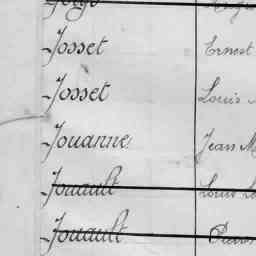 Josset Ernest
Josset Louis
Jouanne Jean M
Jouault Louis
Jouault